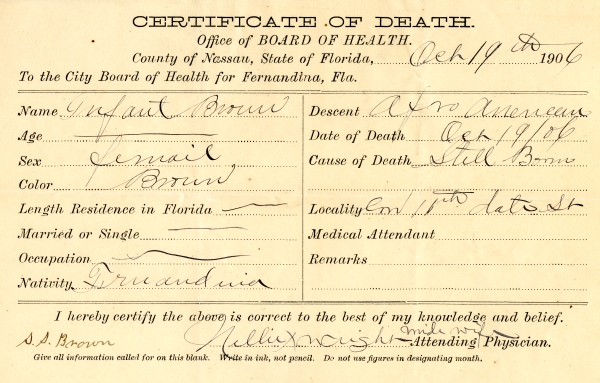 CERTIFICATE OF DEATH.
Office of BOARD OF HEALTH.
County of Nassau, State of Florida, Oct 19th 1906
To the City Board of Health for Fernandina, Fla.
Name Infant Brown
Age
Sex femail
Color Brown
Length Residence in Florida
Married or Single
Occupation
Nativity Fernandina
Descent Afro American
Date of Death Oct 19/06
Cause of Death Still Born
Locality Cor 11th St
Medical Attendant
Remarks
I hereby certify the above is correct to the best of my knowledge and belief.
S.S. Brown Nellie X Wright midwife Attending Physician.
Give all information called for on this blank. Write in ink, not pencil. Do not use figures in designating month.